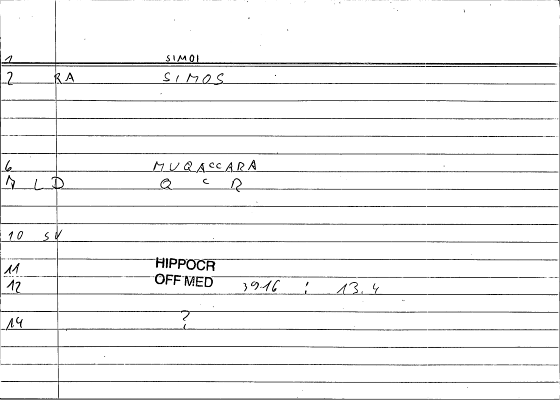 1 SIMOI
2 RA SIMOS
6 MUQAccARA
LD Q c R
10 SV
11 HIPPOCR
12 OFF MED 3916 : 13.4
14 ?